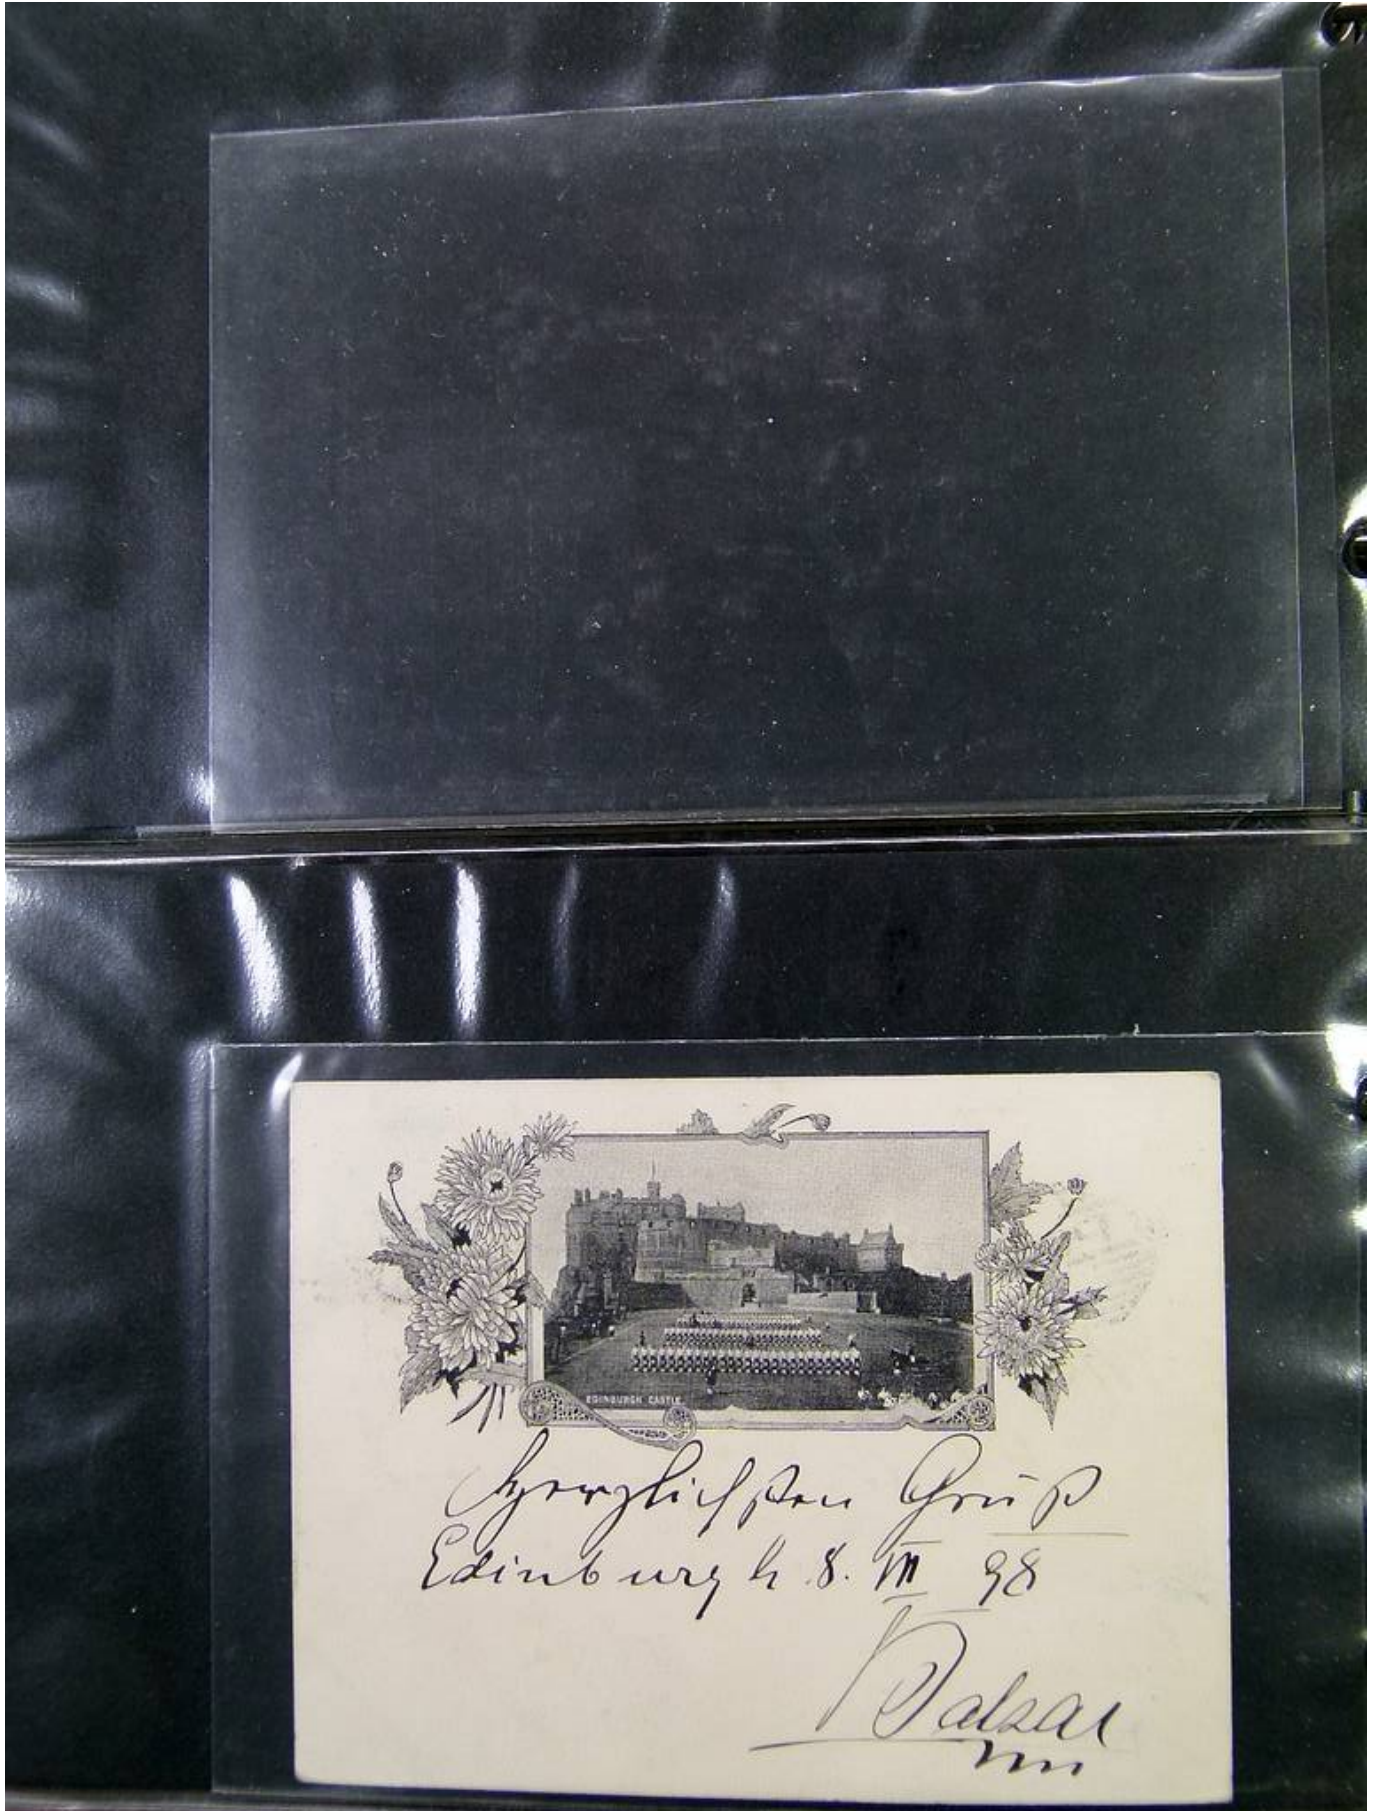 EDINBURGH CASTLE
Herzlichsten Gruß
Edinburgh 8. VII 98